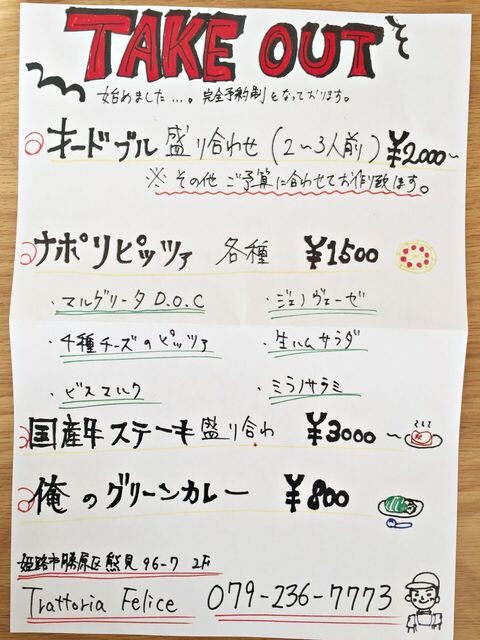 TAKE OUT
始めました...。完全予約制となっております。
オードブル 盛り合わせ (2~3人前) ¥2,000~
※ その他 ご予算に合わせてお作り致します。
ナポリピッツァ 各種 ¥1500
・マルゲリータ D.O.C ・ジェノヴェーゼ
・4種チーズのピッツァ ・生ハムサラダ
・ビスマルク ・ミラノサラミ
国産牛ステーキ 盛り合わ ¥3000 ~
俺のグリーンカレー ¥800
姫路市勝原区熊見 96-7 2F
Trattoria Felice 079-236-7773